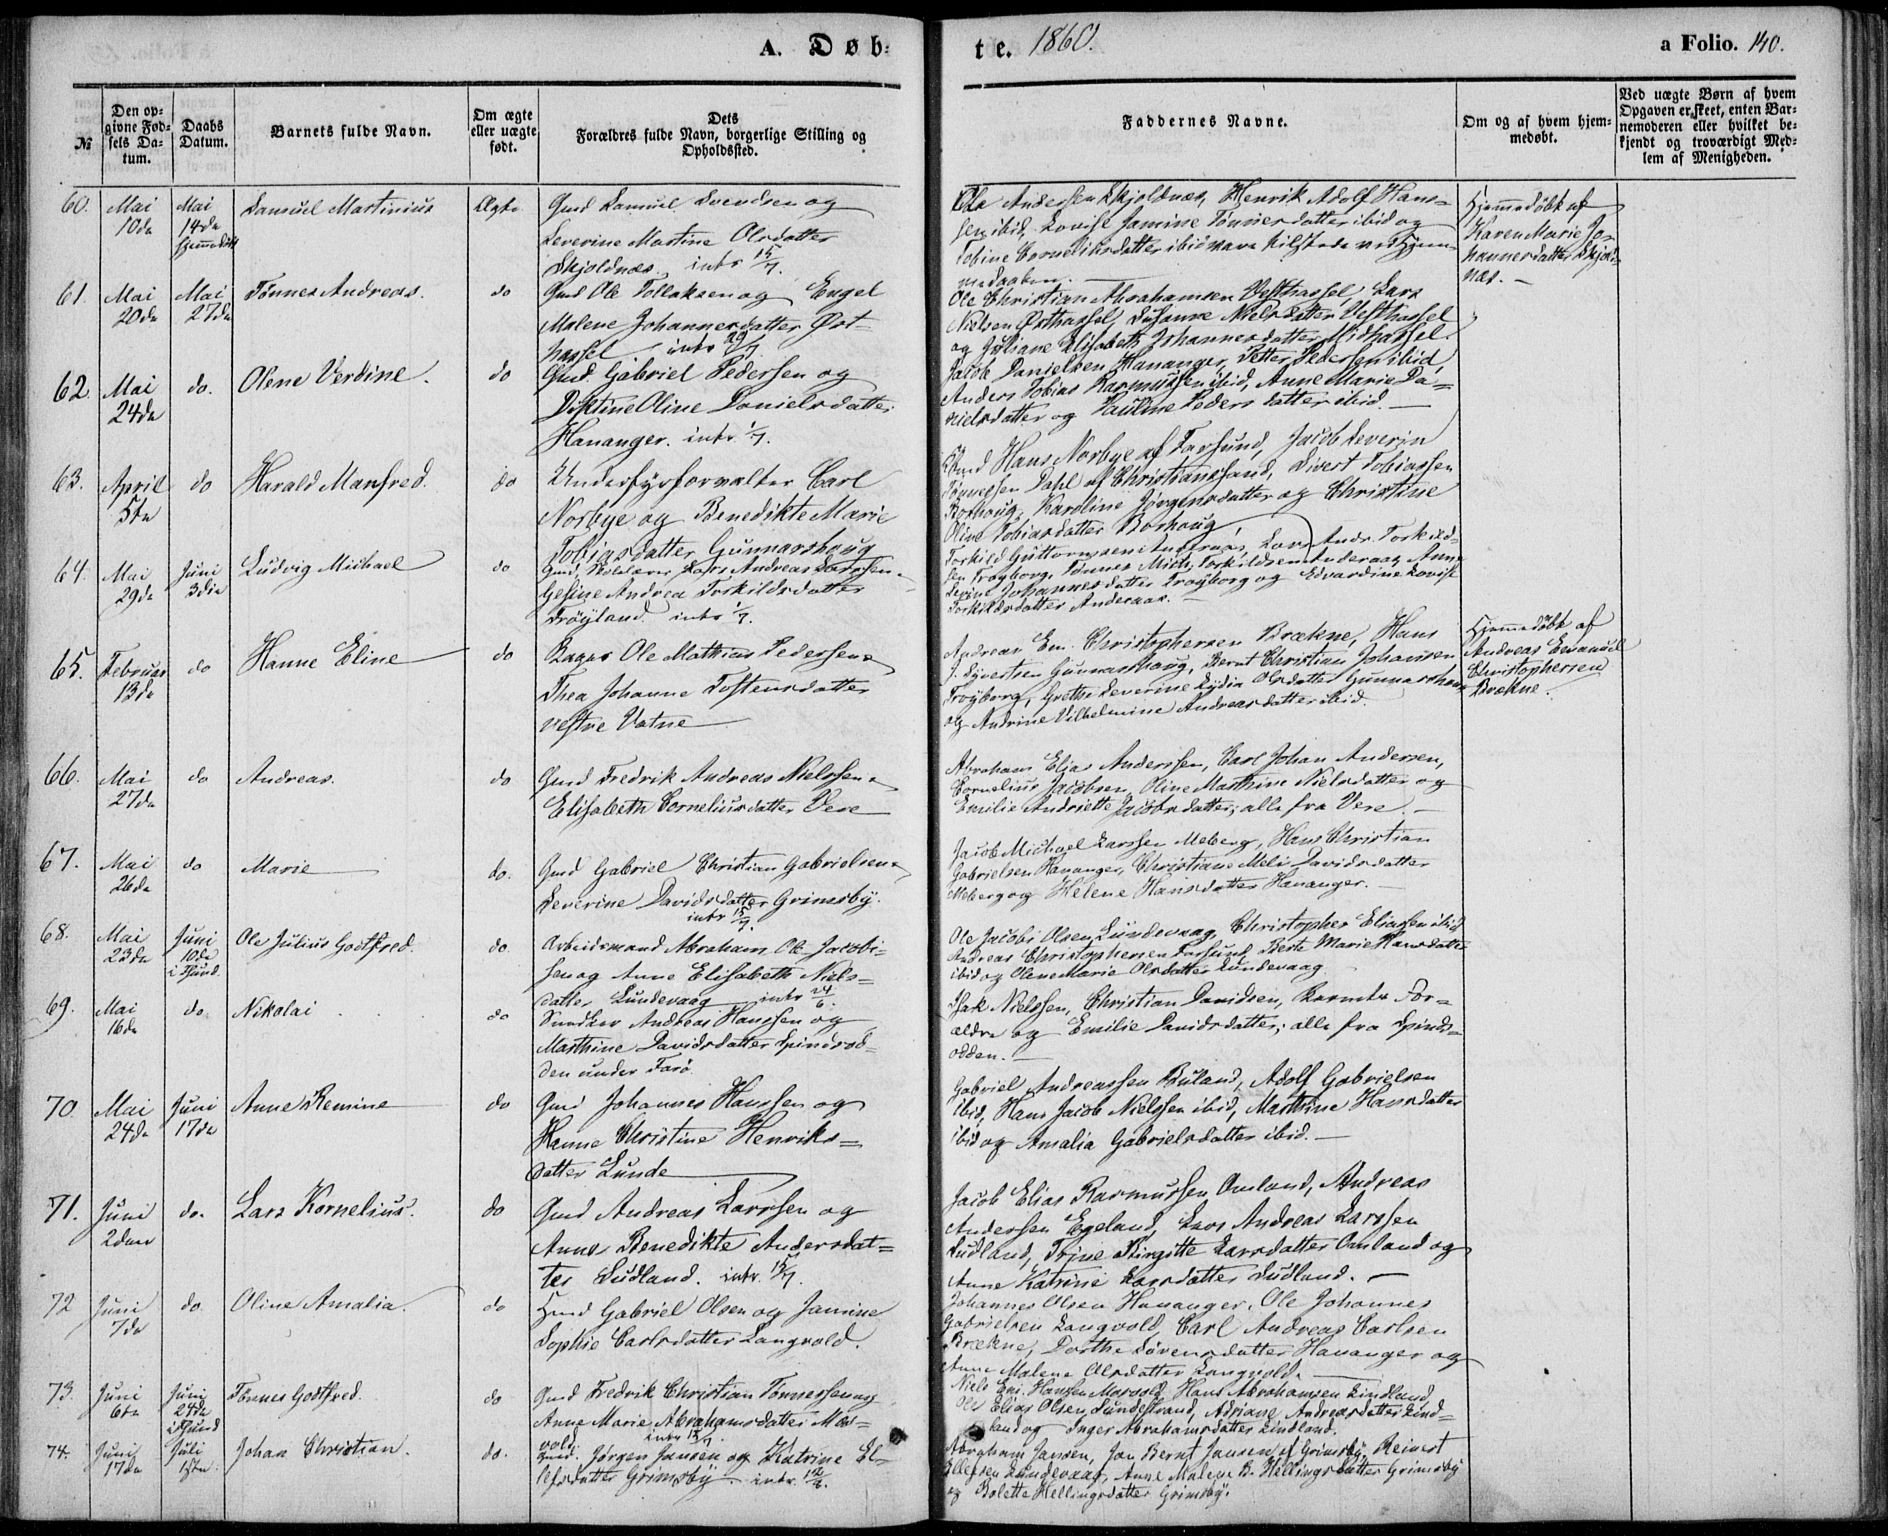 A. Døb-
te. 1860.
a Folio. 140.
№
Den opgivne Fødsels Datum.
Daabs Datum.
Barnets fulde Navn.
Om ægte eller uægte født.
Dets Forældres fulde Navn, borgerlige Stilling og Opholdssted.
Faddernes Navne.
Om og af hvem hjemmedøbt.
Ved uægte Børn af hvem Opgaven er skeet, enten Barnemoderen eller hvilket bekjendt og troværdigt Medlem af Menigheden.
60. Mai 10de Mai 14de Hjemmedøbt Samuel Martinius Ægte
Gmd Samuel Svendsen og
Severine Martine Olsdatter
Skjoldnæs. intr 15/7.
Ole Andersen Skjoldnæs, Henrik Adolf Hans-
sen ibid, Lovise Jamine Tønnesdatter ibid og
Tobine Corneliusdatter ibid vare tilstede ved Hjem-
medaaben.
Hjemmedøbt af
Karen Marie Jo-
hannesdatter Skjold-
næs. —
61. Mai 20de Mai 27de Tønnes Andreas. do
Gmd Ole Tollaksen og Engel
Malene Johannesdatter Øst-
hassel intr 29/7.
Ole Christian Abrahamsen Vesthassel, Lars
Nielsen Østhassel, Susanne Nielsdatter Vesthassel
og Juliane Elisabeth Johannesdatter Midhassel.
62. Mai 24de do. Olene Verdine. do
Gmd. Gabriel Pedersen og
Distine Oline Danielsdatter
Hananger. intr. 1/7.
Jacob Danielsen Hananger, Petter Pedersen ibid,
Anders Tobias Rasmussen ibid, Anne Marie Da-
nielsdatter og Pauline Pedersdatter ibid. —
63. April 5te do Harald Manfred. do
Underfyrforvalter Carl
Norbye og Benedikte Marie
Tobiasdatter Gunnarshoug
Hans Norbye af Farsund, Jacob Severin
Dahl af Christianssand, Sivert Tobiassen
Borhoug, Karoline Jørgensdatter og Christine
Oline Tobiasdatter Borhoug
64. Mai 29de Juni 3die Ludvig Michael do
Gmd Skolelærer Lars Andreas Larssen
Gesine Andrea Torkildsdatter
Frøyland intr 1/7.
Torkild Guttormsen Anderaas, Lars Andr. Torkild-
sen Trøyborg, Tønnes Mich. Torkildsen Anderaas, Anne
Sevine Johannesdatter Trøyborg og Edvardine Lovise
Torkildsdatter Anderaas. —
65. Februar 13de do Hanne Eline do
Bager Ole Mathias Pedersen
Thea Johanne Tostensdatter
vestre Vatne
Andreas Em. Christophersen Brækne, Hans
J. Syvertsen Gunnarshoug, Bernt Christian Johansen
Trøyborg, Grethe Severine Lydia Olsdatter Gunnarshoug
og Andrine Vilhelmine Andreasdatter ibid.
Hjemmedøbt af
Andreas Emanuel
Christophersen
Brækne.
66. Mai 27de do Andreas. do
Gmd Fredrik Andreas Nielssen
Elisabeth Corneliusdatter Vere
Abraham Elias Anderssen, Carl Johan Andersen,
Cornelius Jacobsen, Oline Marthine Nielsdatter og
Emilie Andriette Jacobsdatter, alle fra Vere. —
67. Mai 26de do Marie do.
Gmd Gabriel Christian Gabrielsen
Severine Davidsdatter Grimsby.
intr 15/7.
Jacob Michael Larssen Meberg, Hans Christian
Gabrielsen Hananger, Christiane Meli Davidsdatter
Meberg og Helene Hansdatter Hananger. —
68. Mai 23de Juni 10de i Fsund Ole Julius Godtfred. do
Arbeidsmand Abraham Ole Jacobi-
sen og Anne Elisabeth Niels-
datter Lundevaag intr 24/6.
Ole Jacobi Olsen Lundevaag, Christopher Eliassen ibid
Andreas Christophersen Farsund, Berte Marie Hansdatter
ibid og Olene Marie Olsdatter Lundevaag
69. Mai 16de do. Nikolai do
Andreas Hanssen og
Marthine Davidsdatter Spindsod-
den under Farø.
Isak Nielssen, Christian Davidsen, Barnets For-
ældre og Emilie Davidsdatter; alle fra Spinds-
odden. —
70. Mai 24de Juni 17de Anne Remine do
Gmd Johannes Hanssen og
Hanne Christine Henriks-
datter Lunde
Gabriel Andreassen Buland, Adolf Gabrielsen
ibid, Hans Jacob Nielssen ibid, Marthine Hansdatter
ibid og Amalia Gabrielsdatter ibid. —
71. Juni 2den do. Lars Kornelius. do
Gmd Andreas Larssen og
Anne Benedikte Andersdat-
ter Sudland. intr. 15/7.
Jacob Elias Rasmussen Omland, Andreas
Andersen Egeland, Lars Andreas Larssen
Sudland, Trine Birgitte Larsdatter Omland og
Anne Katrine Larsdatter Sudland. —
72 Juni 7de do. Oline Amalia. do
Hmd Gabriel Olsen og Jamine
Sophie Carlsdatter Langvold.
Johannes Olsen Hananger, Ole Johannes
Gabrielsen Langvold, Carl Andreas Carlsen
Brækne, Dorthe Sørensdatter Hananger og
Anne Malene Olsdatter Langvold.
73. Juni 6te Juni 24de i Fsund Tønnes Godtfred. do
Gmd Fredrik Christian Tønnessen og
Anne Marie Abrahamsdatter Mar-
vold intr 15/7.
Niels Em. Hanssen Marvold, Hans Abrahamsen Lindland,
Ole Elias Olsen Sundestrand, Adriane Andreasdatter Lind-
land og Inger Abrahamsdatter Lindland.
74. Juni 17de Juli 1ste Johan Christian. do.
Gmd. Jørgen Jansen og Katrine El-
lefsdatter Grimsby intr.
Abraham Jansen, Jan Bernt Jansen af Grimsby, Reinert
Ellefsen Lundevaag, Anne Malene B. Hellingsdatter Grimsby
og Bolette Hellingsdatter Grimsby.